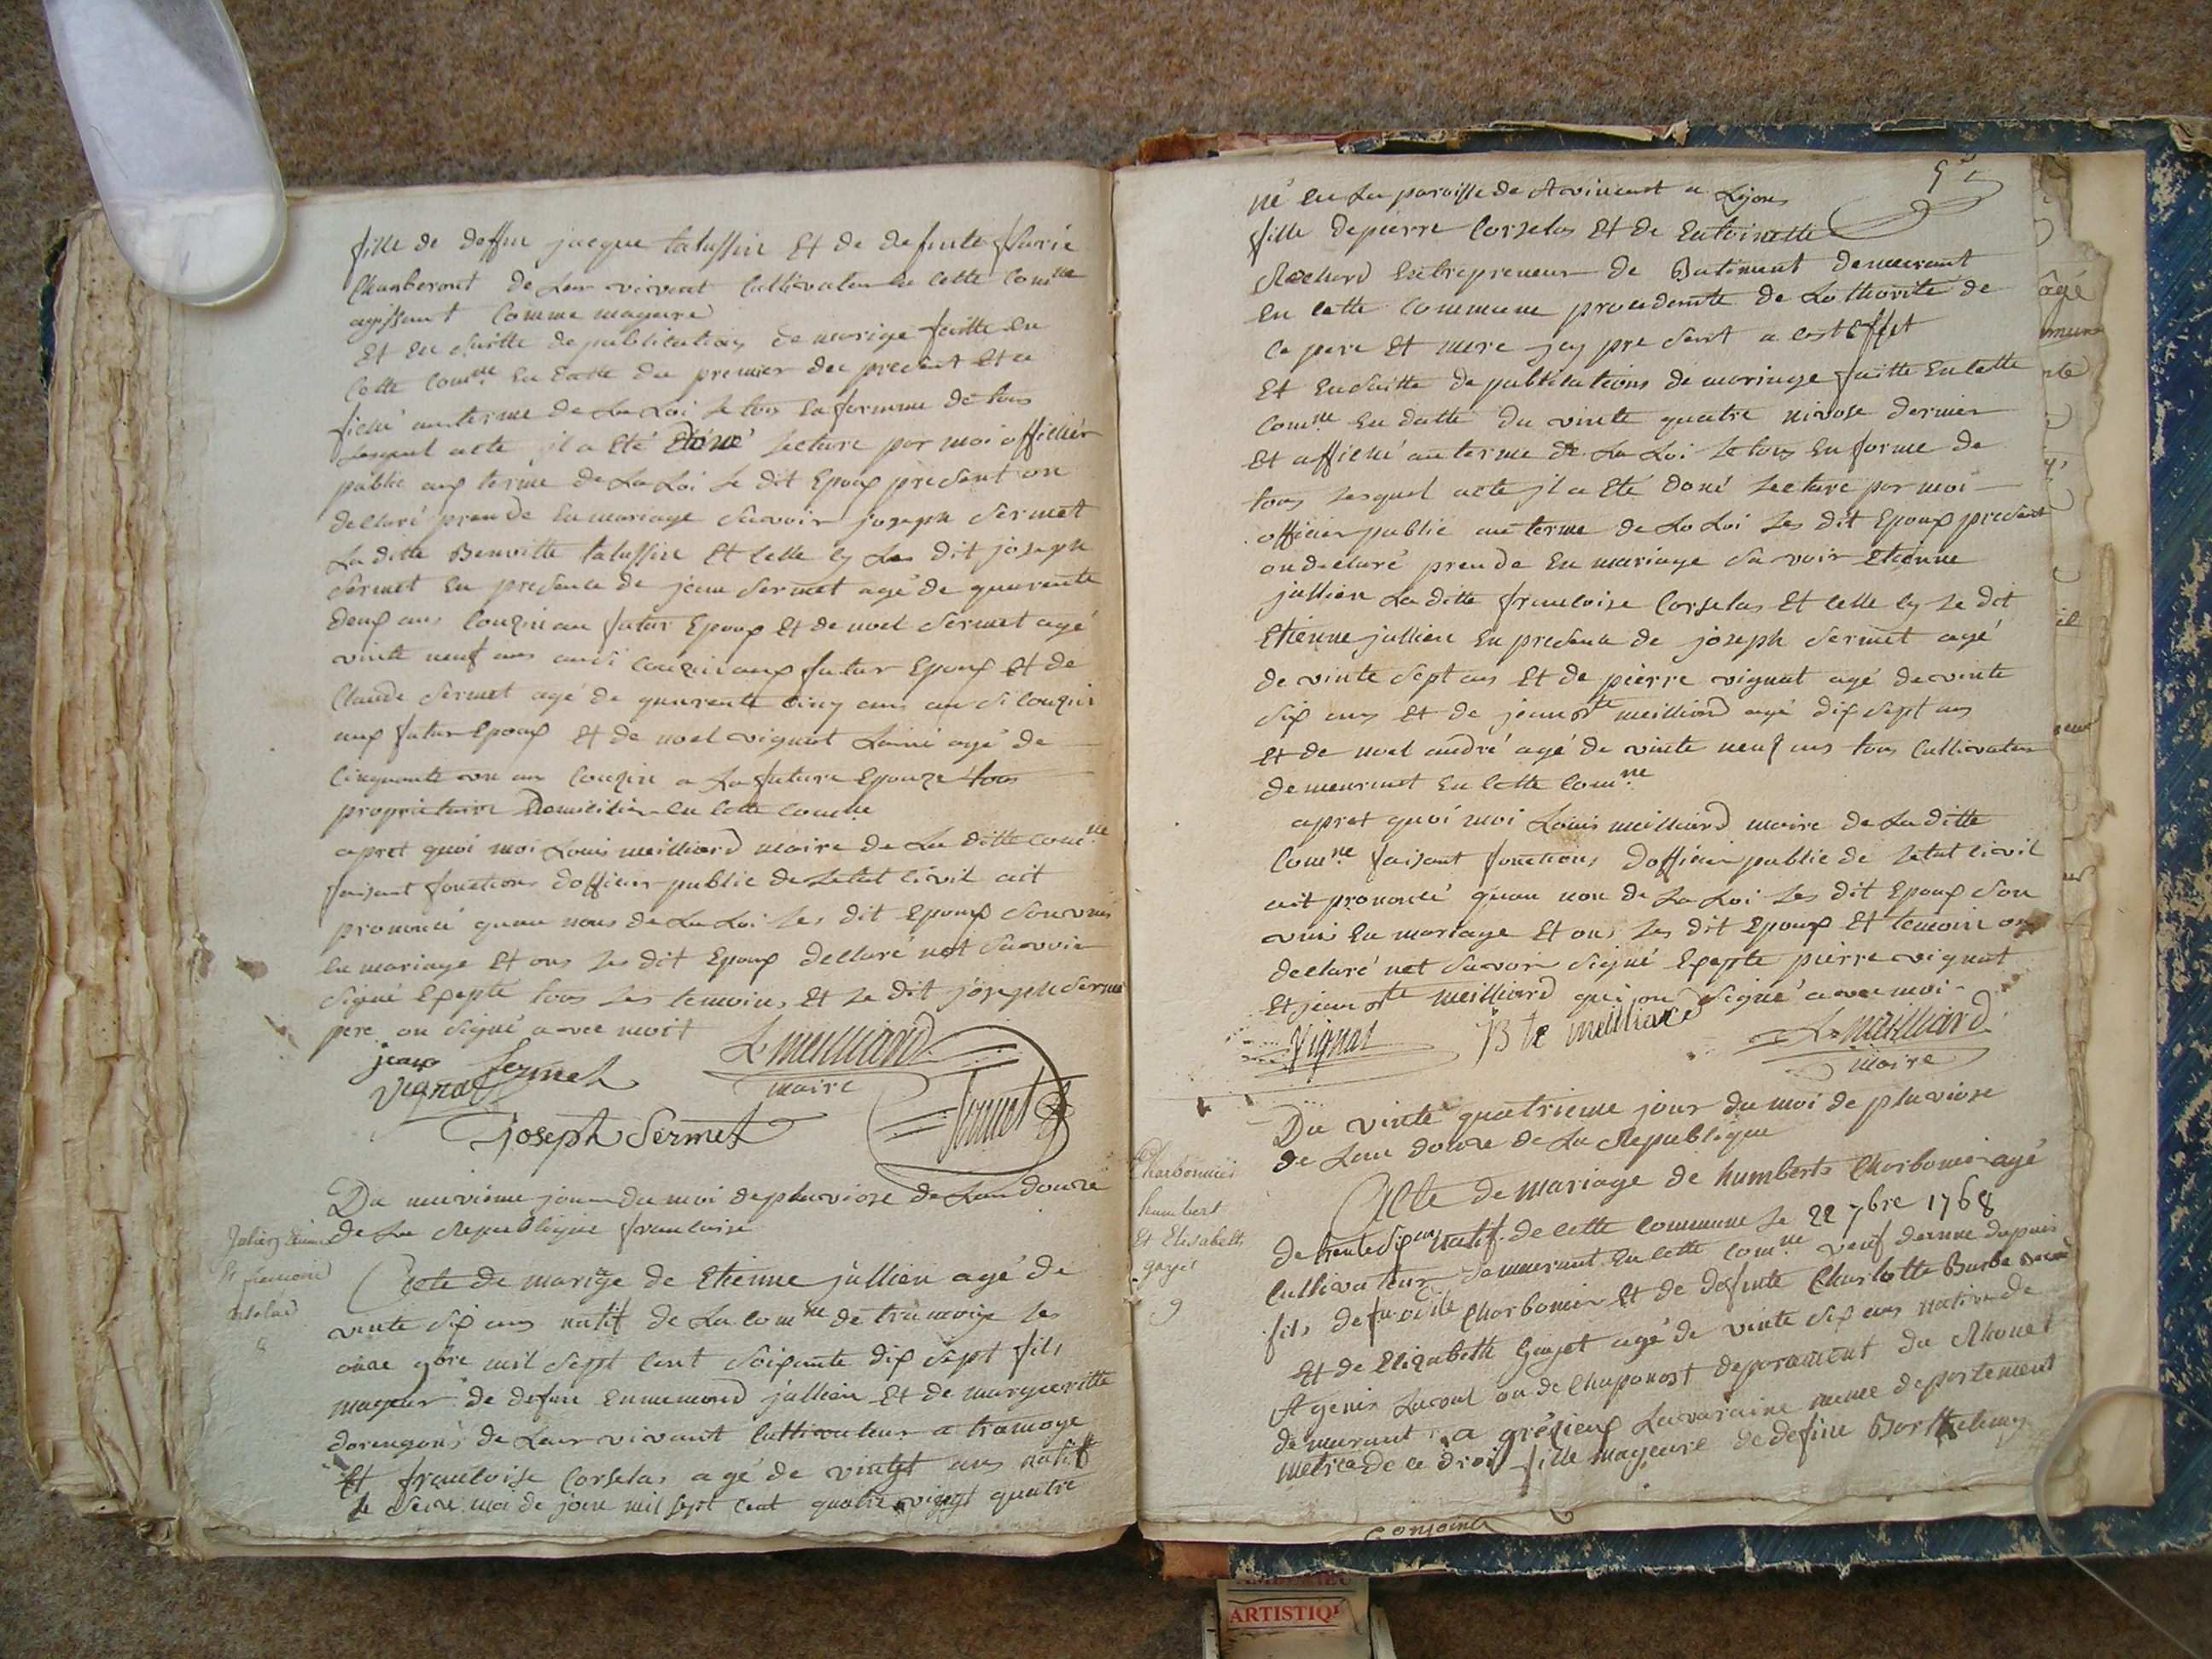 fille de deffun jacque talussin Et de defunte
Chamberont de Leur vivant Cultivateur En cette Comne
agissant Comme mageure
Et En suitte de publications de mariage faitte En
Cette Comne En datte du premier du present Et a
fiché au terme de La Loi Le tous En formme de tous
lesquel acte il a Eté doné Lecture par moi officiér
public aux terme de La Loi Le dit Epoux present on
declaré prende En mariage Savoir joseph Sermet
La ditte Benoitte talussin Et celle cy Les dit joseph
Sermet En presence de jean Sermet agé de quarente
deux ans Couzin au futur Epoux Et de noel Sermet agé
vinte neuf ans ausi Couzin aux futur Epoux Et de
Claude Sermet agé de quarente cinq ans au si Couzin
aux futur Epoux Et de noel vignat Lainé agé de
Cinquante un an Couzin a La future Epouze tous
proprietaire Domicilié En cette Comune
apret quoi moi Louis meilliard maire de La ditte Comne
faisant fonctions d'officier public de Letat Civil ait
prononcé quau nons de La Loi Les dit Epoux Son unis
En mariage Et ons Les dit Epoux declaré net Savoir
Signé Exepté tous Les temoins Et Le dit joseph Sermet
pere on Signé avec moi
jean Sermet
vignat
L. meilliard
maire
joseph Sermet
Sermet
Du neuvieme jour du moi de pluviose de Lan douze
de La Republique francaise
Acte de mariage de Etienne jullien agé de
vinte Six ans natif de La comne de tramoye Les
onze 9bre mil Sept Cent Soixante dix Sept fils
mageur de defun Ennemond jullien Et de margueritte
de Leur vivant Cultivateur a tramoye
Et francoise Corselas agé de vingt ans natif
le Seize moi de join mil sept cent quatre vingt quatre
8
né En La paroisse de St vincent a Lyons
fille de pierre Corselas Et de Entoinette
Rochard Entrepreneur de Batiment demeurant
En cette Commune procedente de Lothorité de
Ce pere Et mere jcy pre Sent a cest Effet
Et En Suitte de publications de mariage faitte En cette
Comne En datte du vinte quatre nivose dernier
Et affiché au terme de La Loi Le tous En forme de
tous Lesquel acte jl a Eté doné Lecture par moi
officier public au terme de La Loi Les dit Epoux present
on declaré prende En mariage Savoir Etienne
jullien La ditte francoise Corselas Et celle cy Le dit
Etienne jullien En presence de joseph Sermet agé
de vinte Sept ans Et de pierre vignat agé de vinte
Six ans Et de jean Bte meilliard agé dix Sept ans
Et de noel andré agé de vinte neuf ans tous Cultivateur
demeurant En cette Comne
apret quoi moi Louis meilliard maire de La ditte
Comne faisant fonctions d'officier public de Letat Civil
ait prononcé quau non de La Loi Les dit Epoux Son
unis En mariage Et ons Les dit Epoux Et temoin on
declaré net Savoir Signé Exepte pierre vignat
Et jean Bte meilliard qui on Signé avec moi
Vignat
B te meilliard
L. meilliard
maire
Du vinte quatrieme jour du moi de pluviose
de Lan douze de La Republique
Charbonnier
humbert
Et Elisabeth
gayet
9
Acte de mariage de humberts Charbonier agé
de trente Six ans natif de cette Commune Le 22 7bre 1768
Cultivateur demeurant En cette Comne veuf depuis
fils de Charbonier Et de defunte Charlotte Barbe
Et de Elizabeth Gayet agé de vinte Six ans native de
St genis Laval ou de Chaponost deparement du Rhonet
demeurant a grésieux Lavaraine meme departement
de ce droit fille mageure de defun Barthelemy
conjoints
ARTISTIQ